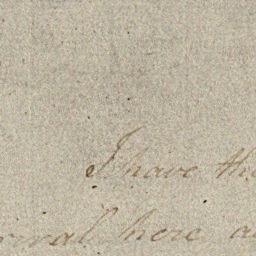 I have the
rival here, a